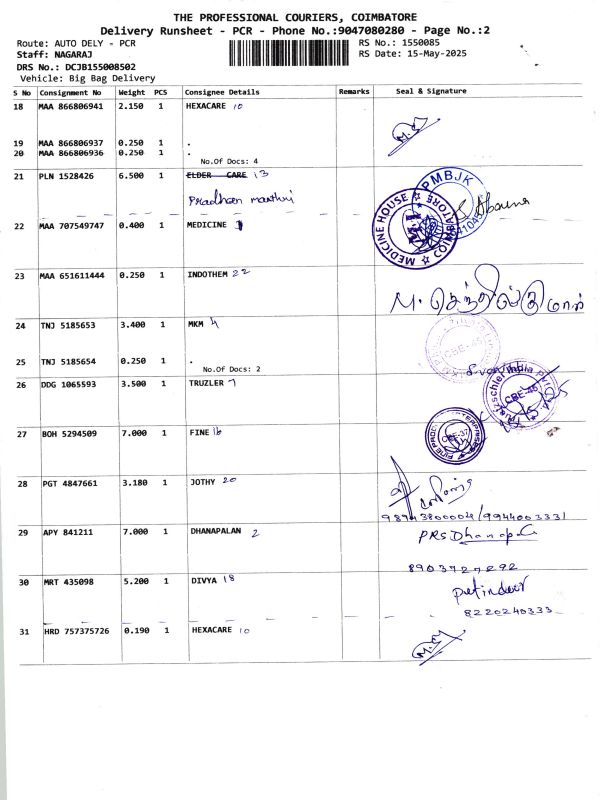 THE PROFESSIONAL COURIERS, COIMBATORE
Delivery Runsheet - PCR - Phone No.:9047080280 - Page No.:2
Route: AUTO DELY - PCR RS No.: 1550085
Staff: NAGARAJ RS Date: 15-May-2025
DRS No.: DCJB155008502
Vehicle: Big Bag Delivery
S No Consignment No Weight PCS Consignee Details Remarks Seal & Signature
18 MAA 866806941 2.150 1 HEXACARE 10
19 MAA 866806937 0.250 1 .
20 MAA 866806936 0.250 1 .
No.Of Docs: 4
21 PLN 1528426 6.500 1 ELDER CARE 13
PMBJK
22 MAA 707549747 0.400 1 MEDICINE
MEDICINE HOUSE COIMBATORE
23 MAA 651611444 0.250 1 INDOTHEM 22
24 TNJ 5185653 3.400 1 MKM 4
CBE-45
25 TNJ 5185654 0.250 1 .
No.Of Docs: 2
26 DDG 1065593 3.500 1 TRUZLER 7
CBE-45
27 BOH 5294509 7.000 1 FINE 16
28 PGT 4847661 3.180 1 JOTHY 20
29 APY 841211 7.000 1 DHANAPALAN 2
PRSDhanapal
30 MRT 435098 5.200 1 DIVYA 18
8220240333
31 HRD 757375726 0.190 1 HEXACARE 10